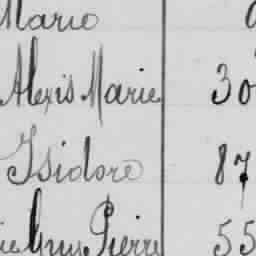 Mario
Alexis Marie 30
Isidore 87
Pierre 55